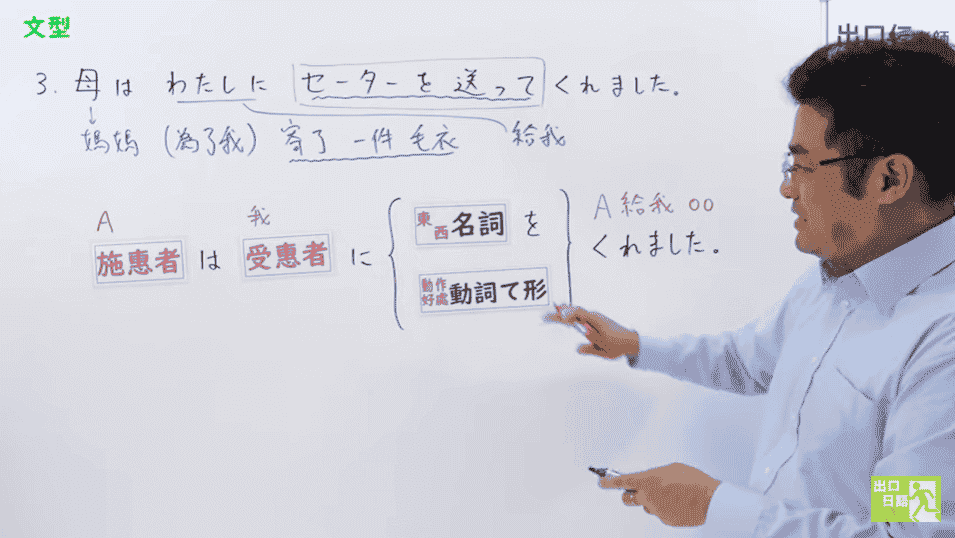 文型
出口仁
師
3. 母は わたしに セーターを 送って くれました。
↓
媽媽 (為了我) 寄了 一件 毛衣 給我
A 我 A 給我 〇〇
施惠者 は 受惠者 に { 東西 名詞 を } くれました。
動作好處 動詞て形
出口日語